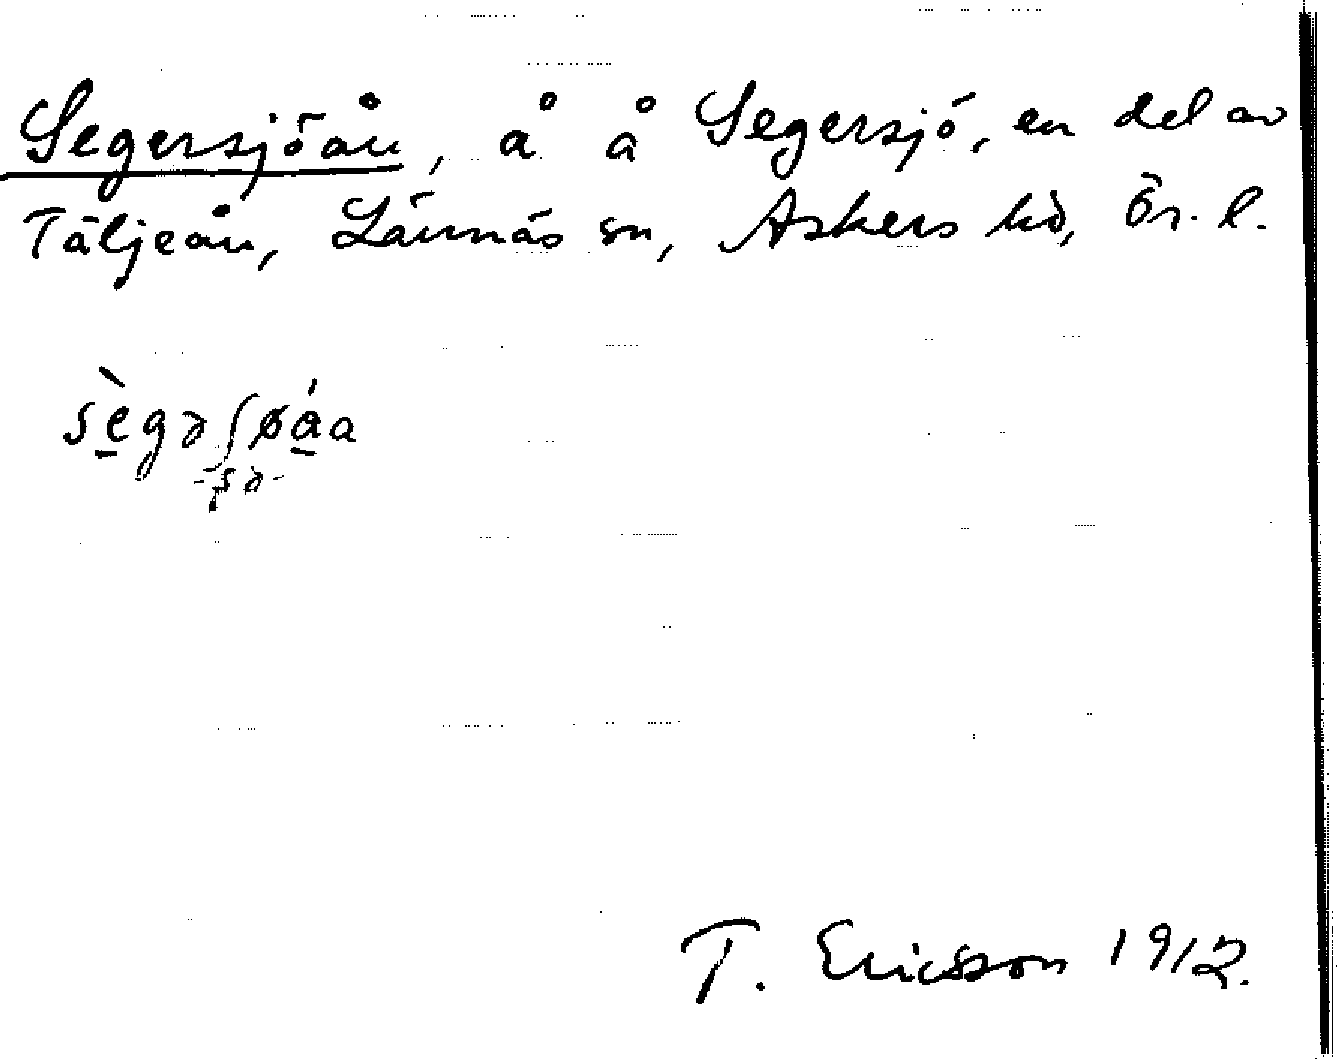 Segersjöån, å å Segersjö, en del av
Täljeån, Lännäs sn, Askers hd, Ör. l.
sègəʃøáa
T. Ericsson 1912.